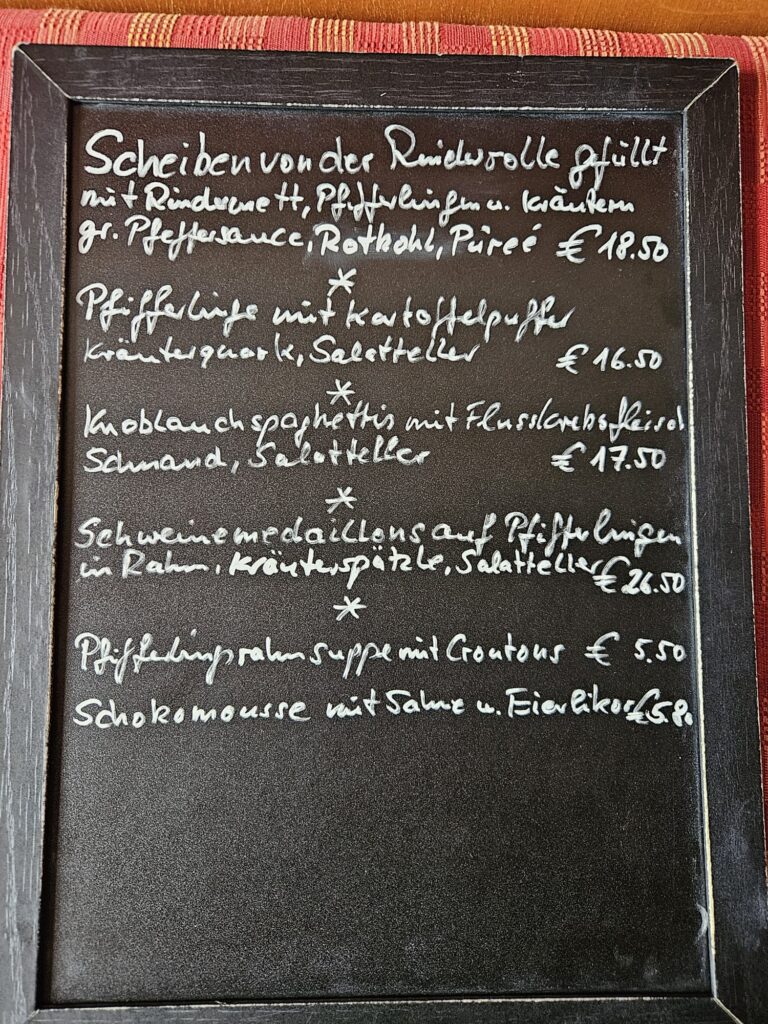 Scheiben von der Rinderrolle gefüllt
mit Rindermett, Pfifferlingen u. Kräutern
gr. Pfeffersauce, Rotkohl, Püreé € 18.50
*
Pfifferlinge mit Kartoffelpuffer
Kräuterquark, Salatteller € 16.50
*
Knoblauchspaghettis mit Flusskrebsfleisch
Schmand, Salatteller € 17.50
*
Schweinemedaillons auf Pfifferlingen
in Rahm, Kräuterspätzle, Salatteller € 26.50
*
Pfifferlingsrahmsuppe mit Croutons € 5.50
Schokomousse mit Sahne u. Eierlikör € 5.80